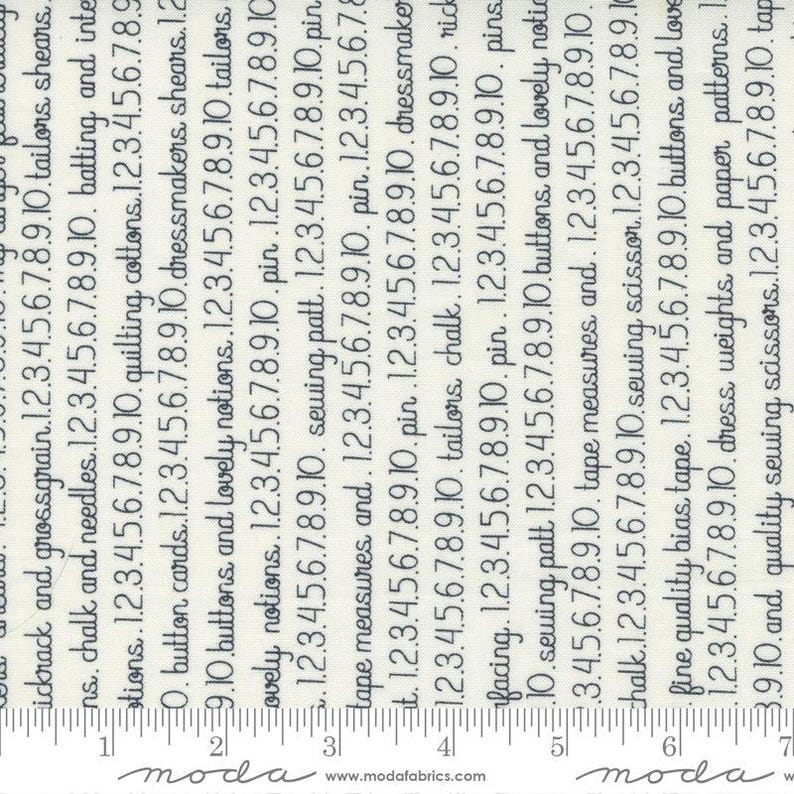 tailors. shears.
ickrack and grossgrain.1.2.3.4.5.6.7.8.9.10.tailors. shears.
ns. chalk and needles.1.2.3.4.5.6.7.8.9.10. batting and inte
otions. .1.2.3.4.5.6.7.8.9.10. quilting cottons.1.2.3.4.5.6.7.8.9
0. button cards.1.2.3.4.5.6.7.8.9.10.dressmakers. shears.1.2
9.10.buttons and lovely notions. .1.2.3.4.5.6.7.8.9.10 tailors.
ovely notions. .1.2.3.4.5.6.7.8.9.10. pin. .1.2.3.4.5.6.7.8.9.10
. .1.2.3.4.5.6.7.8.9.10. sewing patt. .1.2.3.4.5.6.7.8.9.10.pin.
tape measures. and . .1.2.3.4.5.6.7.8.9.10. pin. .1.2.3.4.5.6.7.8
t. .1.2.3.4.5.6.7.8.9.10 pin. .1.2.3.4.5.6.7.8.9.10. dressmaker
.1.2.3.4.5.6.7.8.9.10. tailors. chalk. .1.2.3.4.5.6.7.8.9.10. rick
facing. .1.2.3.4.5.6.7.8.9.10. pin. .1.2.3.4.5.6.7.8.9.10. pins.
.10. sewing patt 1.2.3.4.5.6.7.8.9.10 buttons and lovely notio
.3.4.5.6.7.8.9.10. tape measures. and . .1.2.3.4.5.6.7.8.9.10
chalk.1.2.3.4.5.6.7.8.9.10.sewing scissor.1.2.3.4.5.6.7.8.9.10
. fine quality bias tape. .1.2.3.4.5.6.7.8.9.10.buttons. and love
.1.2.3.4.5.6.7.8.9.10. dress weights and paper patterns. .1
8.9.10.and quality sewing scissors.1.2.3.4.5.6.7.8.9.10. tap
1 2 3 4 5 6 7
moda www.modafabrics.com moda